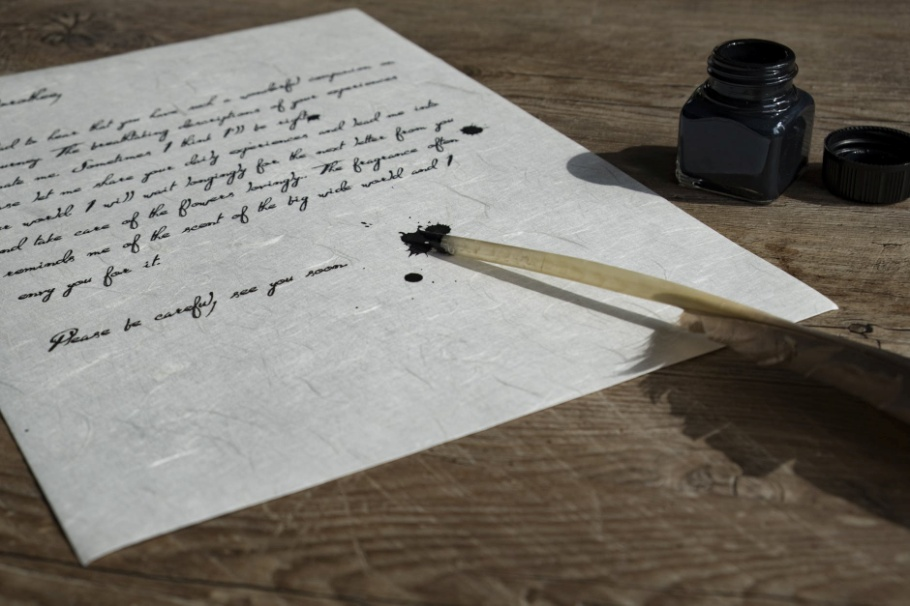 had to hear that you have such a wonderful companion on
journey. The breathtaking descriptions of your experiences
me. Sometimes I think I'll be right
let me share your daily experiences and lead me into
world I will wait longingly for the next letter from you
and take care of the flowers lovingly. The fragrance often
reminds me of the scent of the big wide world and I
envy you for it.
Please be careful, see you soon.